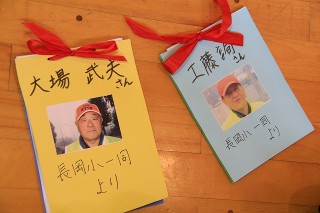 大場 武夫
さん
長岡小一同
より
工藤 洵
さん
長岡小一同
より